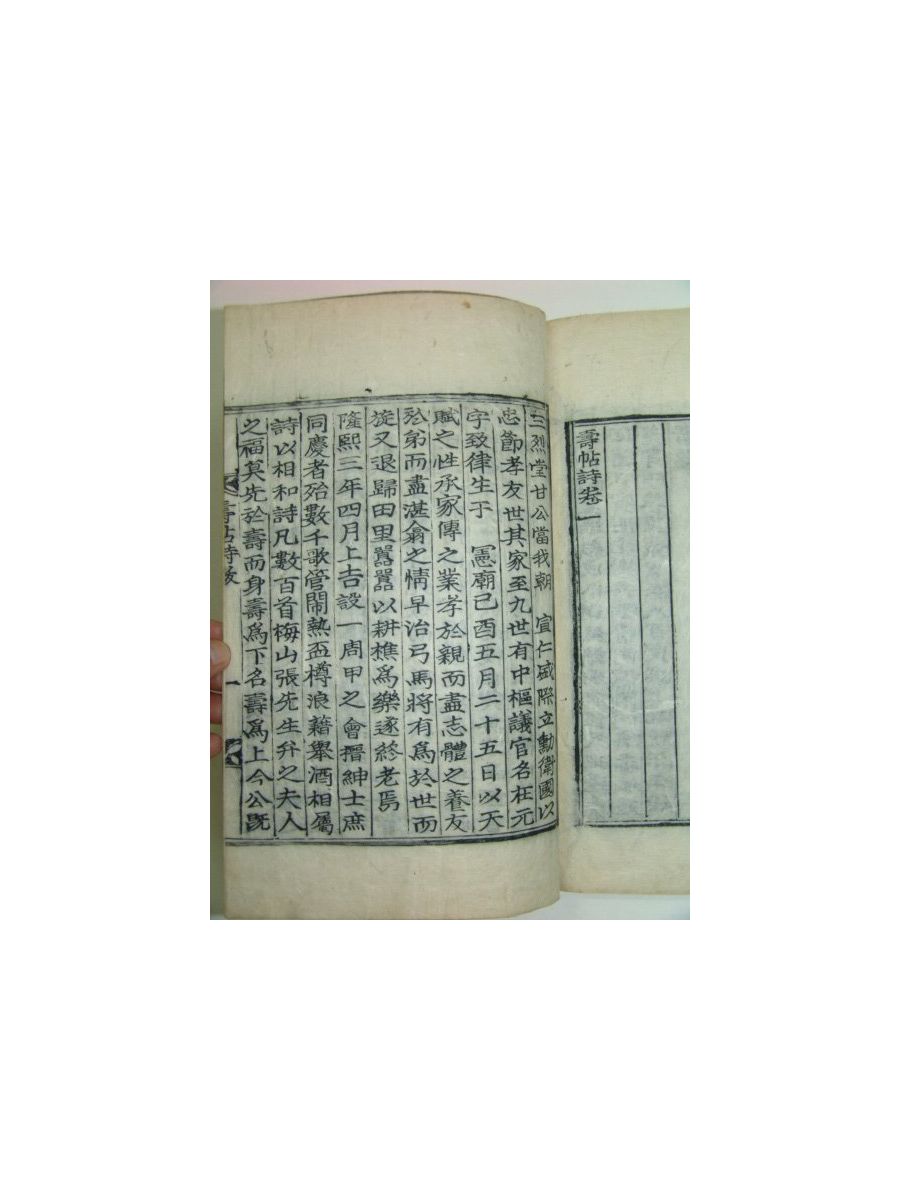 壽帖詩卷一
三烈堂甘公當我朝 宣仁盛際立勳衛國以
忠節孝友世其家至九世有中樞議官名在元
字致律生于 憲廟己酉五月二十五日以天
賦之性承家傳之業孝於親而盡志體之養友
於弟而盡湛翕之情早治弓馬將有爲於世而
旋又退歸田里囂囂以耕樵爲樂遂終老焉
隆熙三年四月上吉設一周甲之會搢紳士庶
同慶者殆數千歌管鬧熱盃樽浪藉舉酒相屬
詩以相和詩凡數百首梅山張先生弁之夫人
之福莫先於壽而身壽爲下名壽爲上今公旣
壽帖詩 一